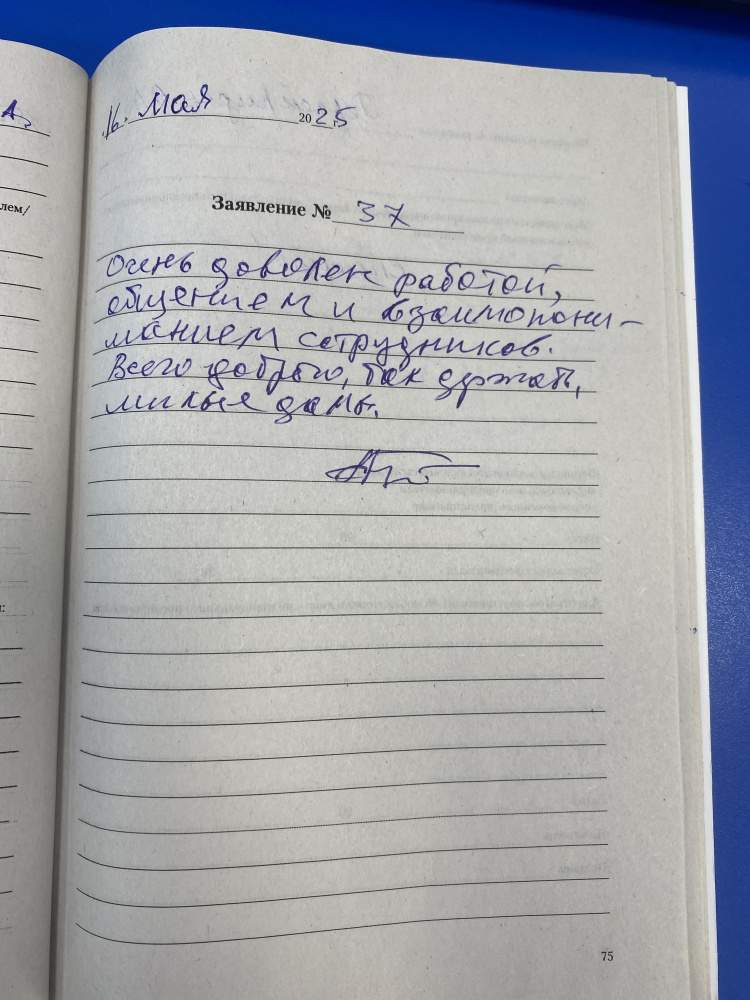 А,
лем/
:
16. Мая 2025 г.
Заявление № 37
Очень доволен работой,
общением и взаимопони-
манием сотрудников.
Всего доброго, так держать,
милые дамы.
75